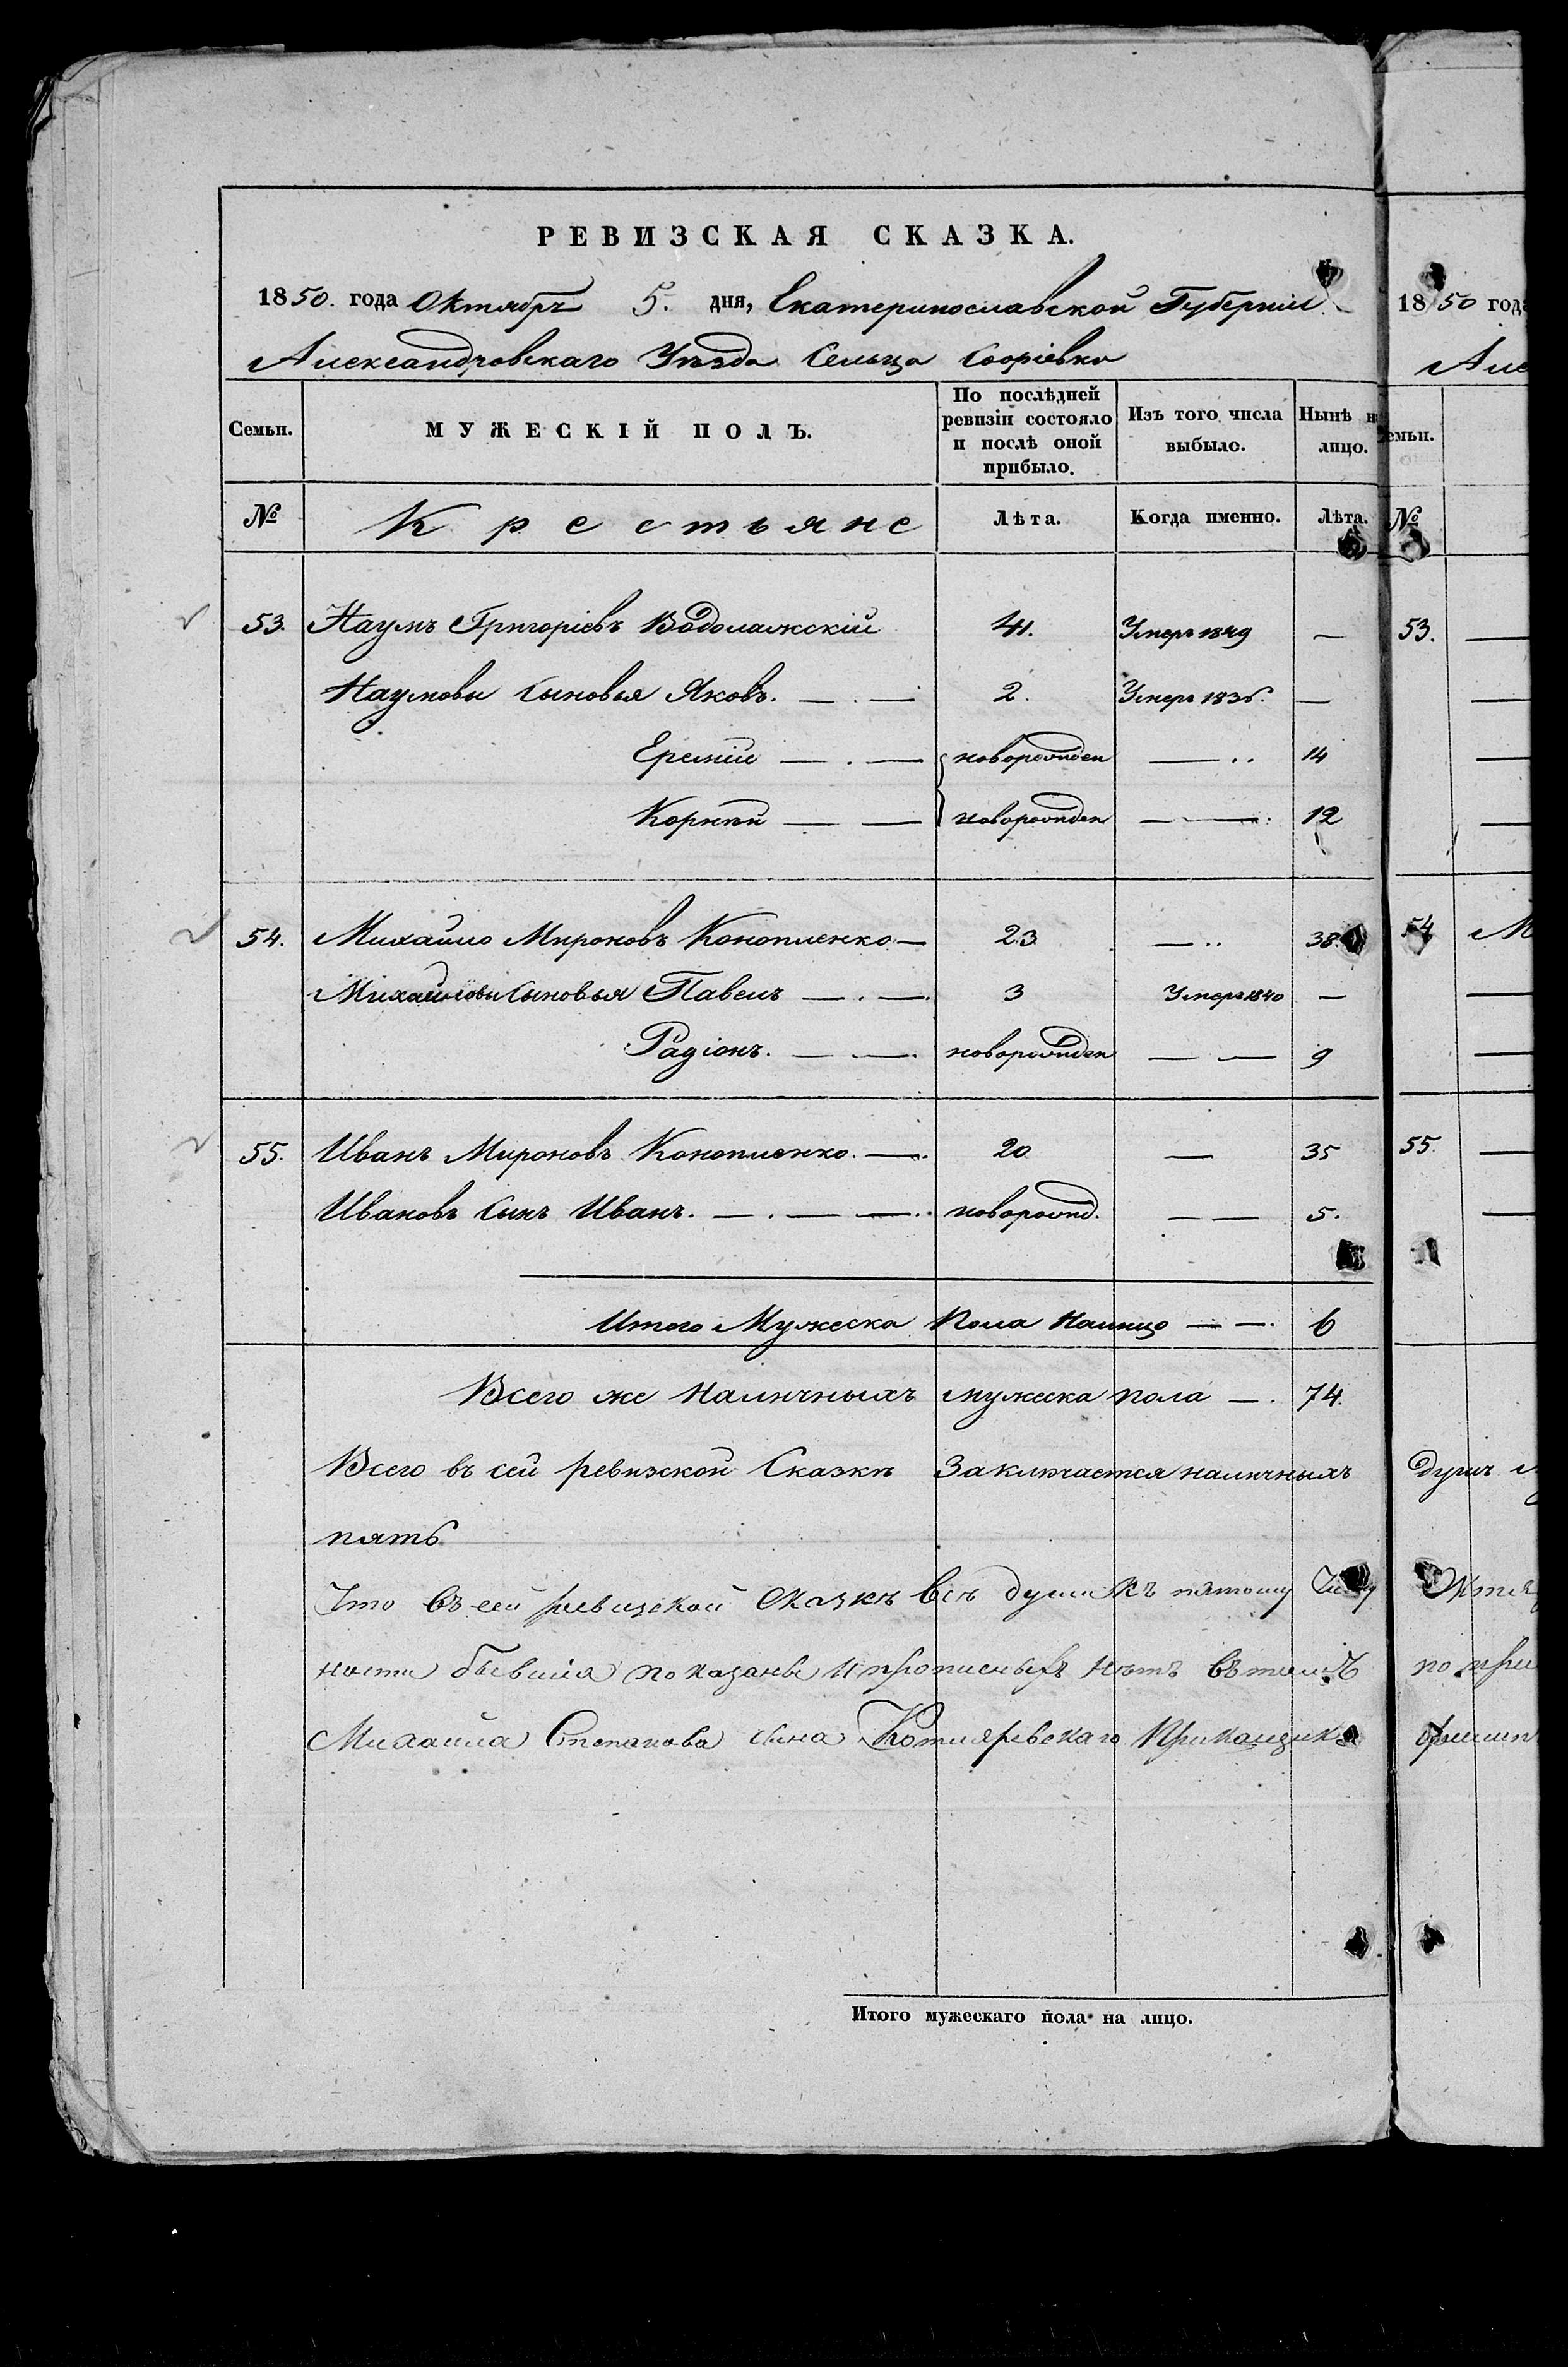 РЕВИЗСКАЯ СКАЗКА.
1850. года Октябръ 5. дня, Екатеринославской Губерніи
Александровскаго Уѣзда Сельца Софіевки
Семьи. МУЖЕСКІЙ ПОЛЪ. По послѣдней ревизіи состояло и послѣ оной прибыло. Изъ того числа выбыло. Нынѣ н лицо.
№ Крестьяне Лѣта. Когда именно. Лѣта.
53. Наумъ Григоріевъ Водолажскій 41. Умеръ 1849 —
Наумовы Сыновья Яковъ. — . — 2. Умеръ 1836. —
Еремій — . — новорожден — . . 14
Корнѣй — — новорожден — — . 12
54. Михайло Мироновъ Конопленко — 23 — . . 38.
Михайловы Сыновья Павелъ — . — . 3 Умеръ 1840 —
Радіонъ. — — . новорожден — — 9
55. Иванъ Мироновъ Конопленко. — . 20 — 35
Ивановъ Сынъ Иванъ. — . — — . . новорожд. — — 5.
Итого Мужеска Пола Налицо — — . 6
Всего же Наличныхъ мужеска пола — . 74.
Всего въ сей ревизской Сказкѣ Заключается наличныхъ
пять
Что въ сей ревизской Сказкѣ Всѣ души къ пятому
ности бывшія показаны и прописныхъ нѣтъ въ томъ
Михаила Степанова сына Котляревскаго Прикащика
Итого мужескаго пола на лицо.
1850 года
Але
емьи.
№
53. —
—
—
—
54 М
—
—
55. —
—
душъ
Октя
по при